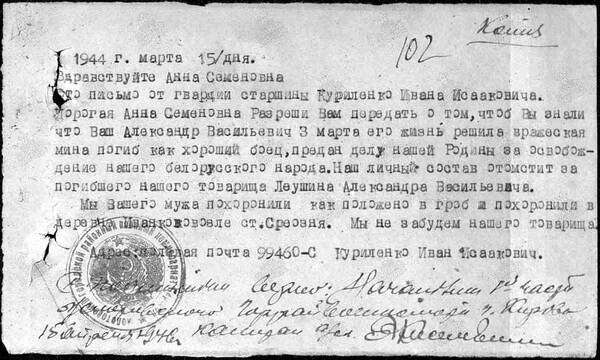 Копия
102
1944 г. марта 15/дня.
Здравствуйте Анна Семеновна
Это письмо от гвардии старшины Куриленко Ивана Исааковича.
Дорогая Анна Семеновна Разреши Вам передать о том, чтоб Вы знали
что Ваш Александр Васильевич 3 марта его жизнь решила вражеская
мина погиб как хороший боец, предан делу нашей Родины за освобож-
дение нашего белорусского народа. Наш личный состав отомстит за
погибшего нашего товарища Леушина Александра Васильевича.
Мы Вашего мужа похоронили как положено в гроб и похоронили в
деревне возле ст. Мы не забудем нашего товарища
Адрес: полевая почта 99460-С Куриленко Иван Исаакович.
С подлинным верно: Начальник 1й части
г. Кирова
1946г. капитан